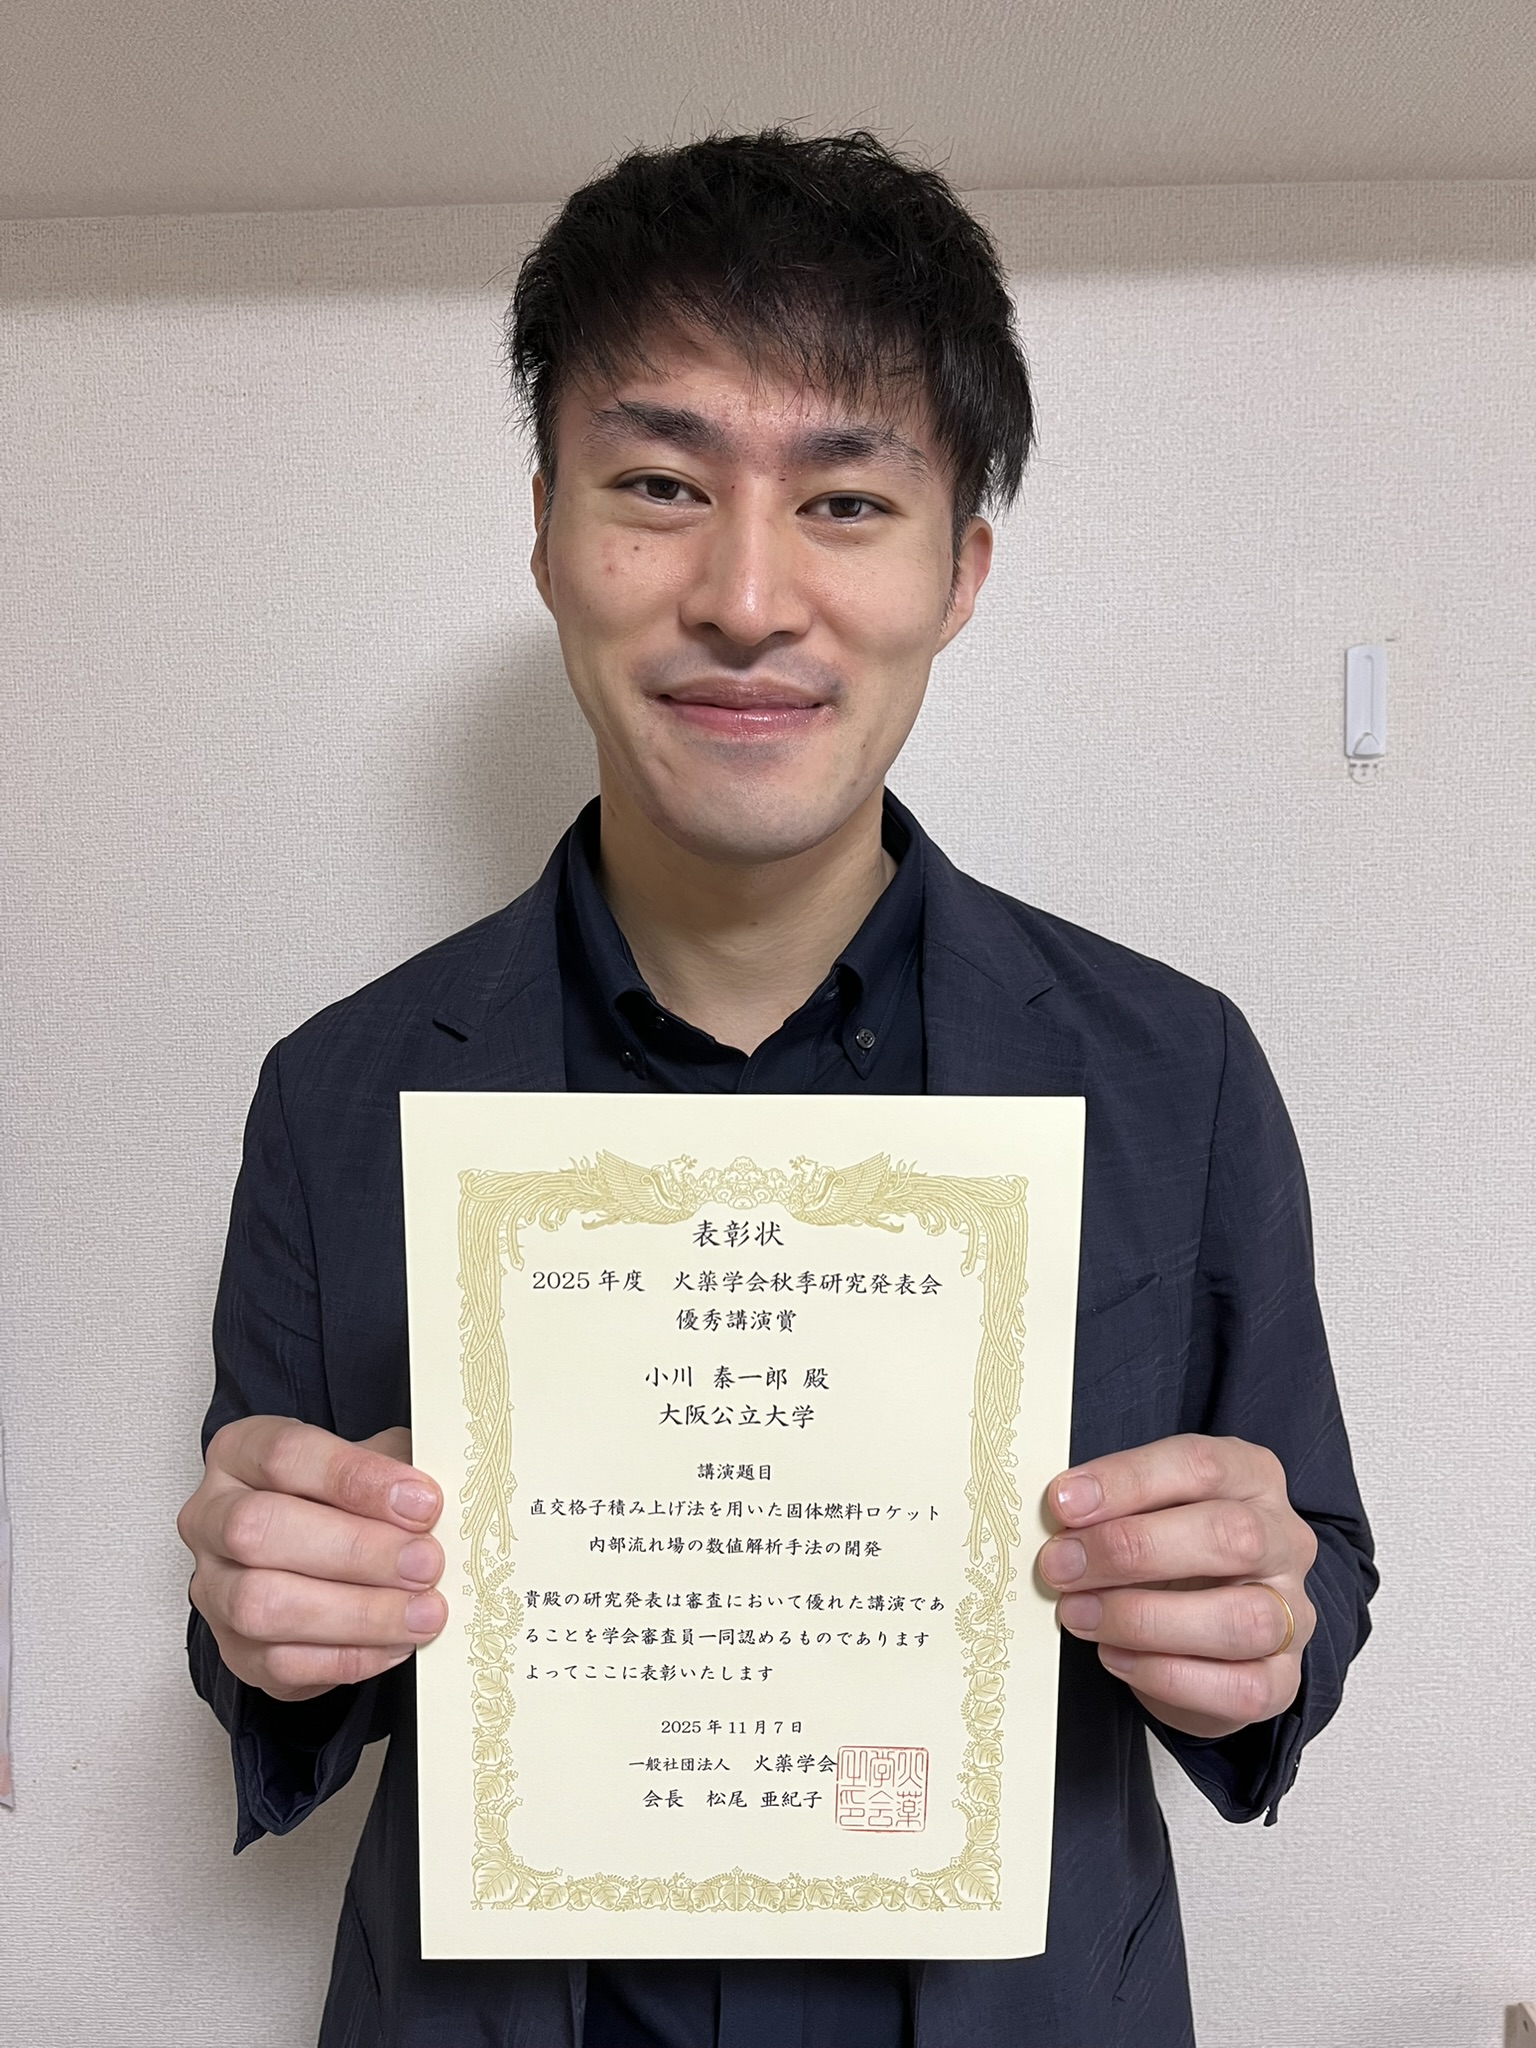 表彰状
2025 年度　火薬学会秋季研究発表会
優秀講演賞
小川 泰一郎 殿
大阪公立大学
講演題目
直交格子積み上げ法を用いた固体燃料ロケット
内部流れ場の数値解析手法の開発
貴殿の研究発表は審査において優れた講演であ
ることを学会審査員一同認めるものであります
よってここに表彰いたします
2025 年 11 月 7 日
一般社団法人　火薬学会
会長　松尾 亜紀子
火薬
学会
之印